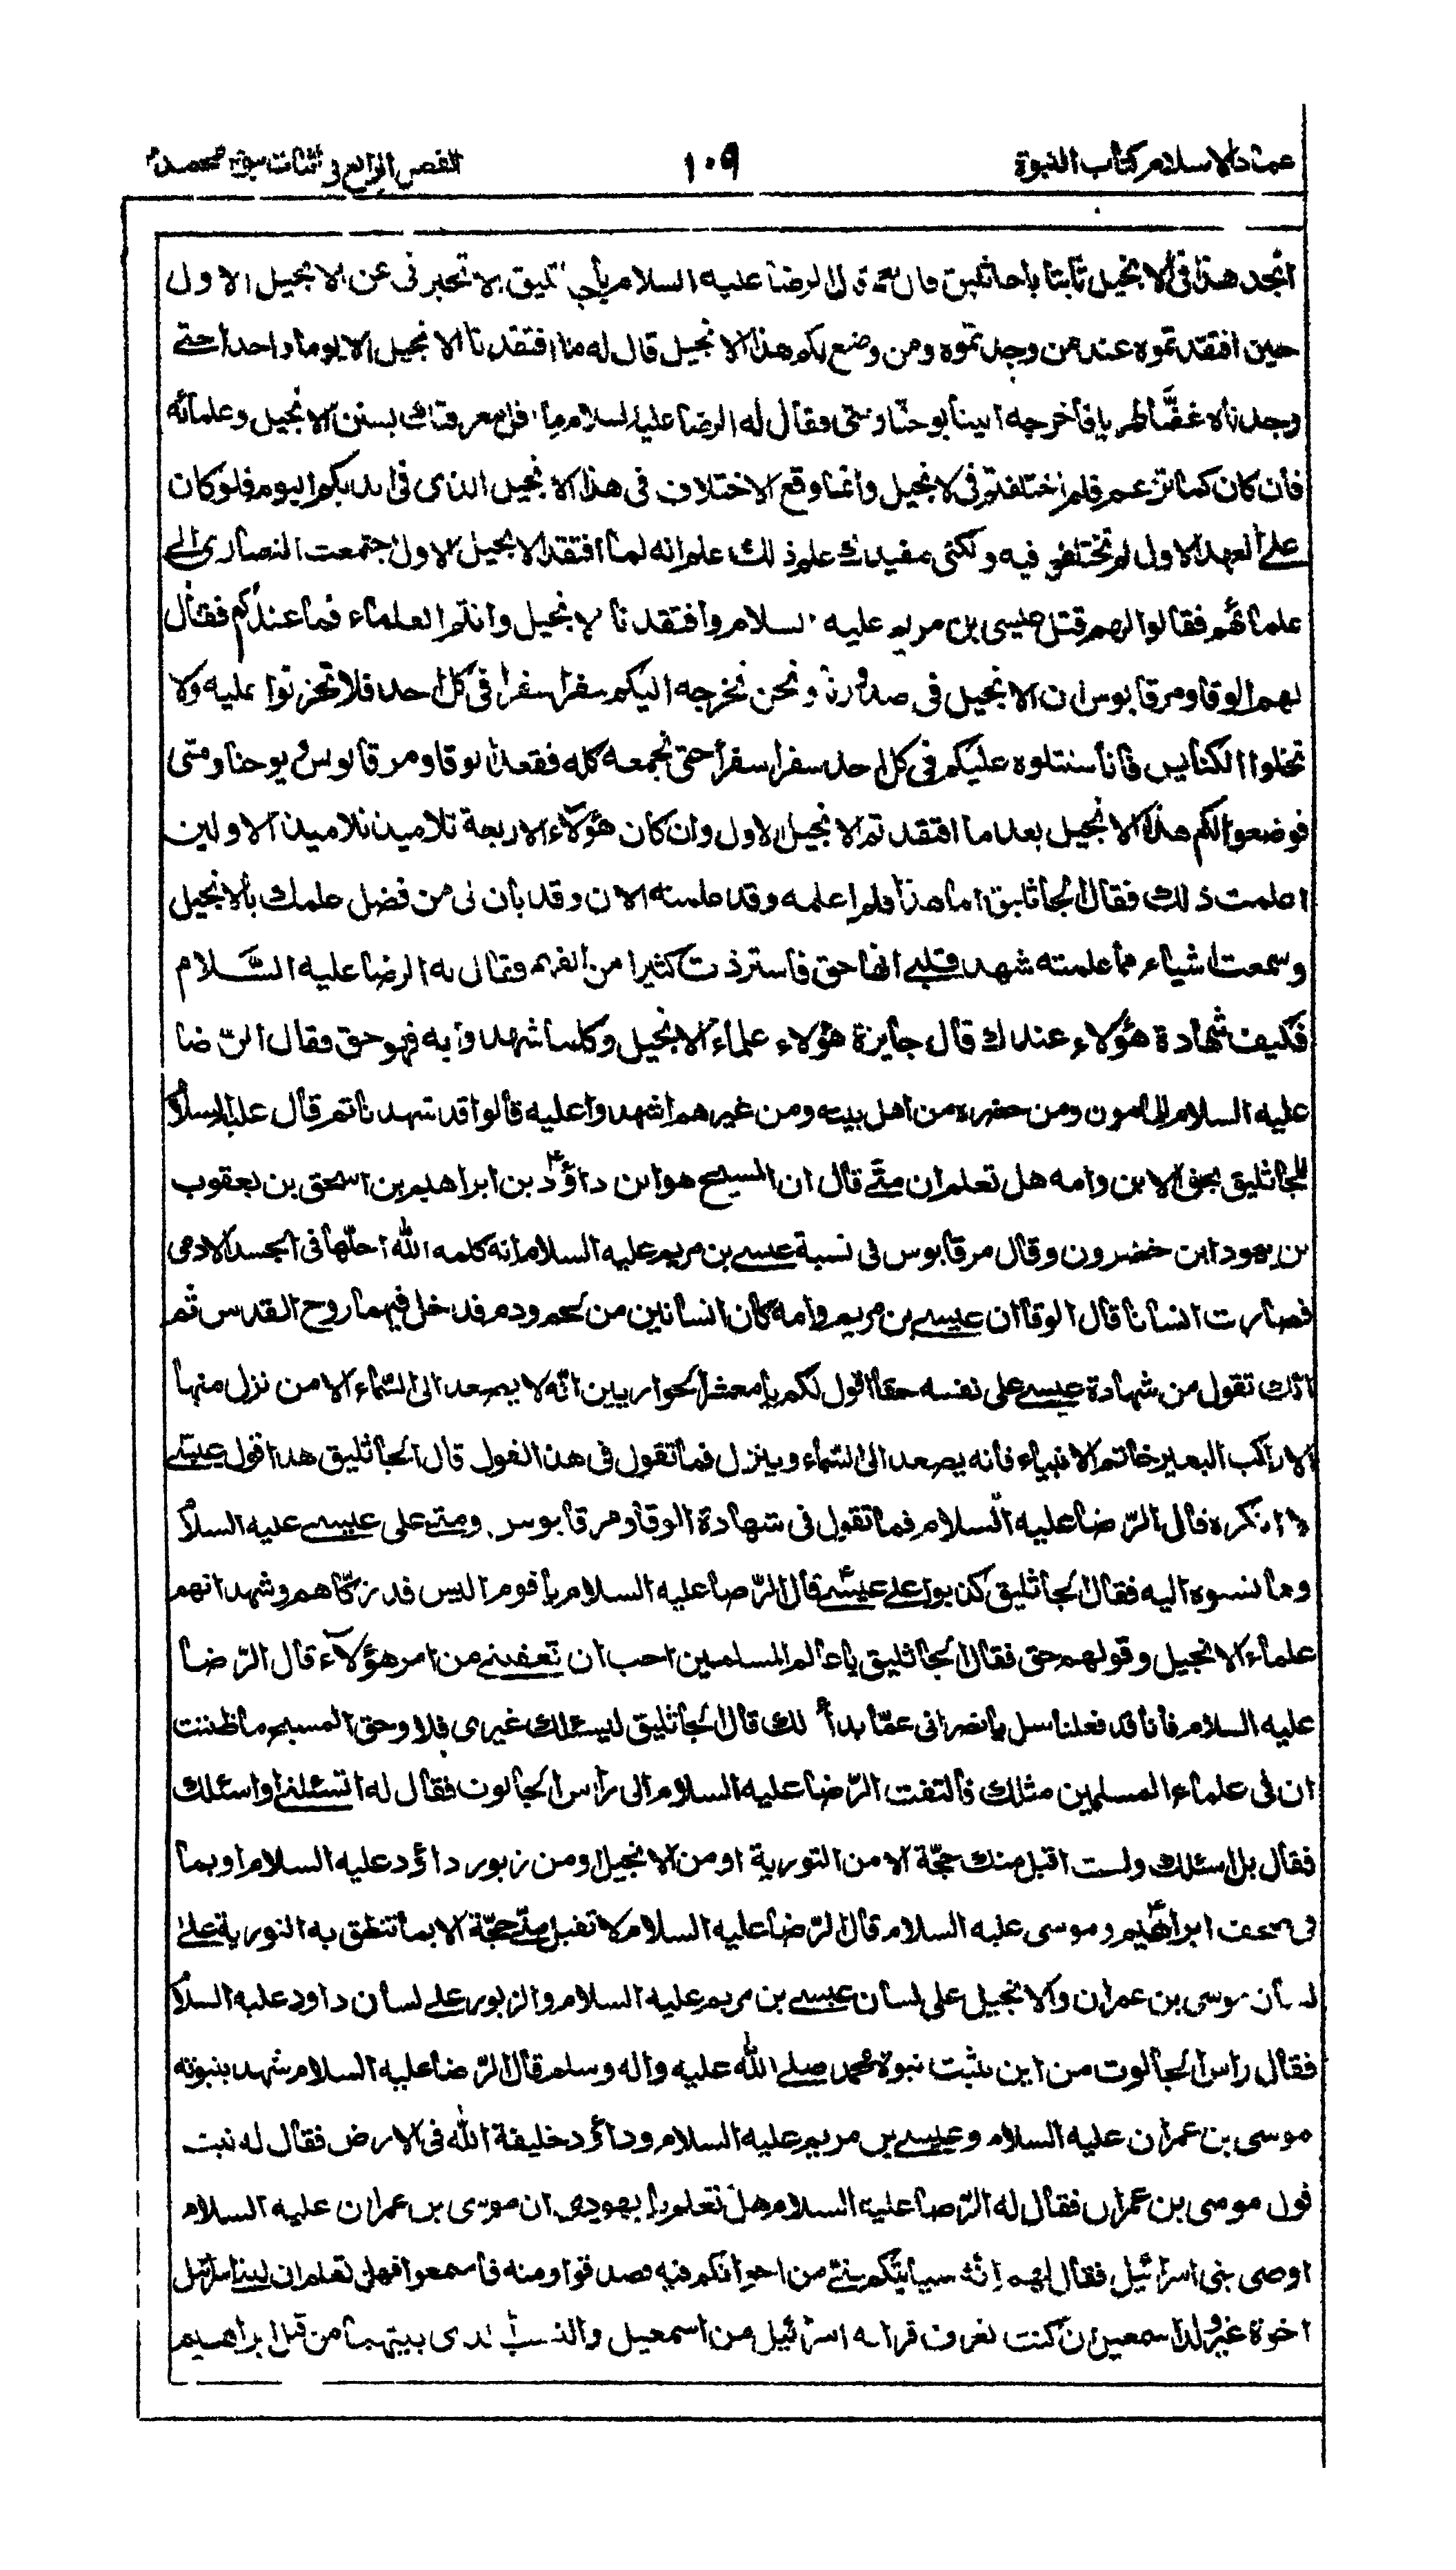 عماد الاسلام كتاب النبوة
١٠٩
الفصل الرابع فى اثبات نبوة محمد
اتجد هذا فى الانجيل ثابتا ياجاثليق قال نعم قال الرضا عليه السلام ياجاثليق الا تخبرنى عن الانجيل الاول
حين افتقدتموه عند من وجدتموه ومن وضع لكم هذا الانجيل قال له ما افتقدنا الانجيل الا يوما واحدا حتے
وجدناه غضّا طريا فاخرجه الينا يوحنّا ومتى فقال له الرضا عليه السلام ما اقل معرفتك بسنن الانجيل وعلمائه
فان كان كما تزعم فلم اختلفتم فى الانجيل وانما وقع الاختلاف فى هذا الانجيل الذى فى ايديكم اليوم فلو كان
علے العهد الاول لم تختلفو فيه ولكنى مفيدك علم ذلك اعلم انه لما افتقد الانجيل الاول اجتمعت النصارى الے
علمائهم فقالوا لهم قتل عيسى بن مريم عليه السلام وافتقدنا الانجيل وانتم العلماء فما عندكم فقال
لهم الوقا ومرقابوس ان الانجيل فى صدورنا ونحن نخرجه اليكم سفرا سفرا فى كل احد فلا تحزنوا عليه ولا
تخلوا الكنايس فانا سنتلوه عليكم فى كل احد سفرا سفرا حتى نجمعه كله فقعد الوقا ومرقابوس ويوحنا ومتى
فوضعوا لكم هذا الانجيل بعد ما افتقدتم الانجيل الاول وان كان هؤلآء الاربعة تلاميذ تلاميذ الاولين
اعلمت ذلك فقال الجاثليق اما هذا فلم اعلمه وقد علمته الان وقد بان لى من فضل علمك بالانجيل
وسمعت اشياء مما علمته شهد قلبے انها حق فاستزدت كثيرا من الفهم فقال له الرضا عليه السَّلام
فكيف شهادة هؤلاء عندك قال جايزة هؤلاء علماء الانجيل وكلما شهدوا به فهو حق فقال الرّضا
عليه السلام للمامون ومن حضره من اهل بيته ومن غيرهم اشهدوا عليه قالوا قد شهدنا ثم قال عليه السلام
للجاثليق بحق الابن وامه هل تعلم ان متّے قال ان المسيح هو ابن داؤد بن ابراهيم بن اسحق بن يعقوب
بن يهودا بن خضرون وقال مرقابوس فى نسبة عيسے بن مريم عليه السلام انه كلمه الله احلّها فى الجسد الادمى
فصارت انسانا قال الوقا ان عيسے بن مريم وامه كان انسانين من لحم ودم فدخل فيهما روح القدس ثم
انك تقول من شهادة عيسے على نفسه حقا اقول لكم يا معشر الحواريين انّه لا يصعد الى السّماء الا من نزل منها
الا راكب البعير خاتم الانبياء فانه يصعد الى السّماء وينزل فما تقول فى هذا القول قال الجاثليق هذا قول عيسے
لا انكره قال الرّضا عليه السّلام فما تقول فى شهادة الوقا ومرقابوس ومتے على عيسے عليه السلام
وما نسبوه اليه فقال الجاثليق كذبوا علے عيسے قال الرّضا عليه السلام يا قوم اليس قد زكّاهم وشهد انهم
علماء الانجيل وقولهم حق فقال الجاثليق يا عالم المسلمين احب ان تعفينے من امر هؤلآء قال الرّضا
عليه السلام فانا قد فعلنا سل يا نصرانى عمّا بدا لك قال الجاثليق ليسئلك غيرى فلا وحق المسيح ما ظننت
ان فى علماء المسلمين مثلك فالتفت الرّضا عليه السلام الى راس الجالوت فقال له اتسئلنے او اسئلك
فقال بل اسئلك ولست اقبل منك حجّة الا من التورية او من الانجيل ومن زبور داؤد عليه السلام او بما
فى صحف ابراهيم وموسى عليه السلام قال الرّضا عليه السلام لا تقبل منّے حجّة الا بما تنطق به التورية علے
لسان موسى بن عمران والانجيل على لسان عيسے بن مريم عليه السلام والزبور علے لسان داود عليه السلام
فقال راس الجالوت من اين يثبت نبوة محمد صلے الله عليه واله وسلم قال الرّضا عليه السلام شهد بنبوته
موسى بن عمران عليه السلام وعيسے بن مريم عليه السلام وداؤد خليفة الله فى الارض فقال له ثبت
قول موسى بن عمران فقال له الرّضا عليه السلام هل تعلم يا يهودى ان موسى بن عمران عليه السلام
اوصى بنى اسرائيل فقال لهم انّه سياتيكم نبے من اخوانكم فبه فصدقوا ومنه فاسمعوا فهل تعلم ان لبنى اسرائيل
اخوة غير ولد اسمعيل ان كنت تعرف قرابه اسرائيل من اسمعيل والنسب الذى بينهما من قبل ابراهيم